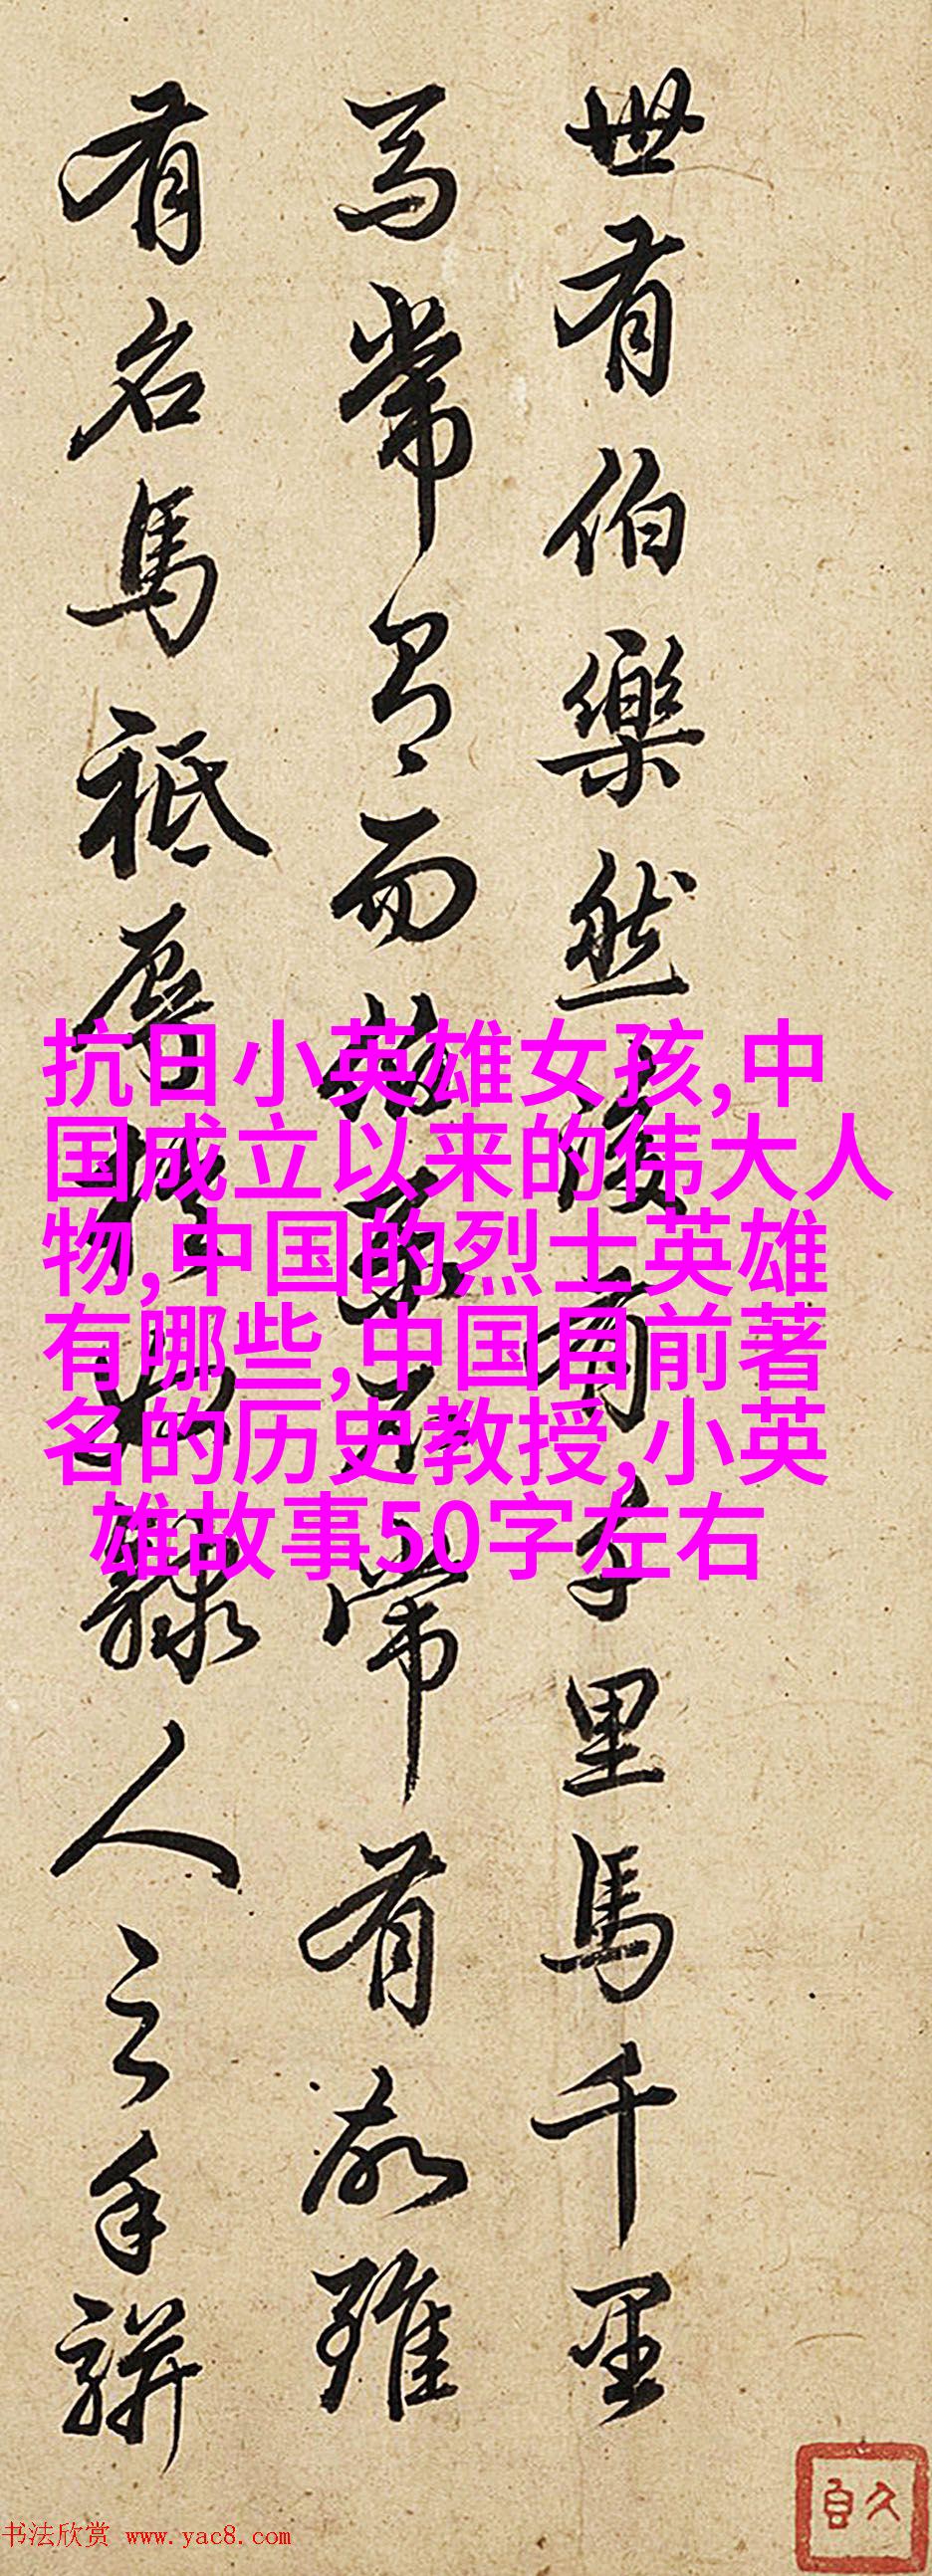 世有伯樂然後有千里馬千里
馬常有而伯樂不常有故雖
有名馬祇辱於奴隸人之手駢
抗日小英雄女孩,中
国成立以来的伟大人
物,中国的烈士英雄
有哪些,中国目前著
名的历史教授,小英
雄故事50字左右
书法欣赏 www.yac8.com